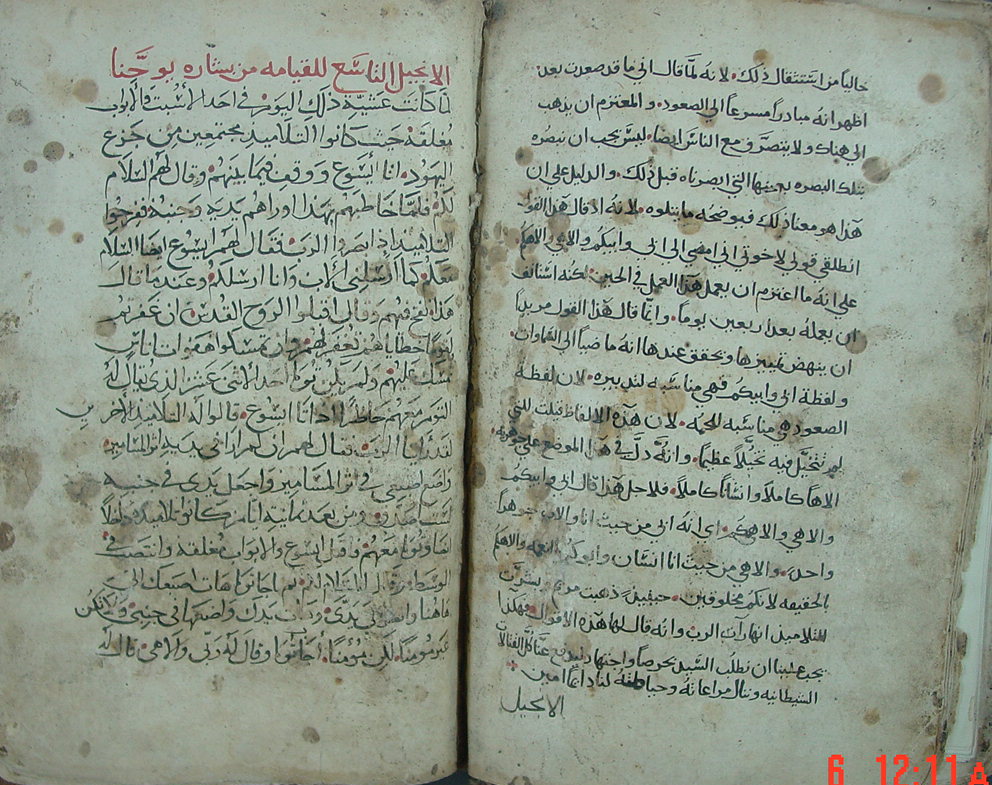 خاليًا من استثقال ذلك. لانه لمّا قال اني ما قد صعدت بعد
اظهر انه مبادرًا مسرعًا الي الصعود. والمعتزم ان يذهب
الي هناك ولا يتصرّف مع الناس ايضًا. ليس يجب ان نبصره
بتلك البصره بعينها التي ابصرناه قبل ذلك. والدليل على ان
هذا هو معنا ذلك فيوضحه ما يتلوه. لانه اذ قال هذا القول
انطلقي قولي لاخوتي اني امضي الي ابي وابيكم والاهي والاهكم.
على انه ما اعتزم ان يعمل هذا العمل في الحين. لكنه استانف
ان يعمله بعد اربعين يومًا. وانمّا قال هذا القول مريدًا
ان ينهض تمييزها ويحقق عندها انه ماضيًا الي السماوات.
ولفظة ابي وابيكم فهي مناسبه لتدبيره. لان لفظة
الصعود هي مناسبه للحمه. لان هذه الالفاظ قيلت للتي
لم تتخيّل فيه تخيُّلاً عظيمًا. وانه دلّ في هذا الموضع علي جوهريه
الاهًا كاملاً وانسانًا كاملاً. فلاجل هذا قال ابي وابيكم
والاهي والاهكم. اي انه ابي من حيث انا والاب جوهرًا
واحد. والاهي من حيث انا انسان وابوكم بالنعمه والاهكم
بالحقيقه لانكم مخلوقين. حينيذٍ ذهبت مريم وبشرت
التلاميذ انها رات الرب وانه قال لها هذه الاقوال. فهكذا
يجب علينا ان نطلب السّيد بحرصًا واجتهاد
الشيطانيه وننال مراعاته وحياطته لنا دايمًا امين
الانجيل
الانجيل التاسع للقيامه من بشاره يوحَّنا
لما كانت عشيّة ذلك اليوم في احد الاسبت والابواب
مُغلقه حيث كانوا التلاميد مجتمعين من جزع
اليهود. اتا أيسوع ووقف فيما بينهم. وقال لهم السلام
لكم. فلمّا خاطبهم بهذا اوراهم يديه وجنبه. ففرحوا
التلاميد اذ ابصروا الرب. فقال لهم ايسوع ايضًا السلام
معكم. كما ارسلني الاب وانا ارسلكم. وعند ما قال
هذا نفخ فيهم وقال اقبلوا الروح القدس. ان غفرتم
لقومًا خطاياهم يغفر لهم. وان مسكوا همَوات اناس
مسك عليهم. ولم يكن توما احد الاثني عشر الدي يقال له
التوم معهم حاظرًا اذ اتا ايسوع. قالوا له التلاميد الاخرين
لقد رأينا الرب. فقال لهم ان لم ارا في يديه اثر المسامير.
واضع اصبعي في اثر المسامير واجعل يدى في جنبه
لست اصدق. ومن بعد ثمانية ايام كانوا تلاميده داخلاً
ايضًا وتوما معهم. وافا ايسوع والابواب مغلقه وانتصب في
الوسط. وقال السلام لكم. ثم اجا توما هات اصبعك الي
هاهنا وابصر يدىَّ. وهات يدك واضعها في جنبي. ولا تكن
غير مومنًا لكن مومنًا. أجا توما وقال له ربّي والاهي. قال له
6 12:11 A